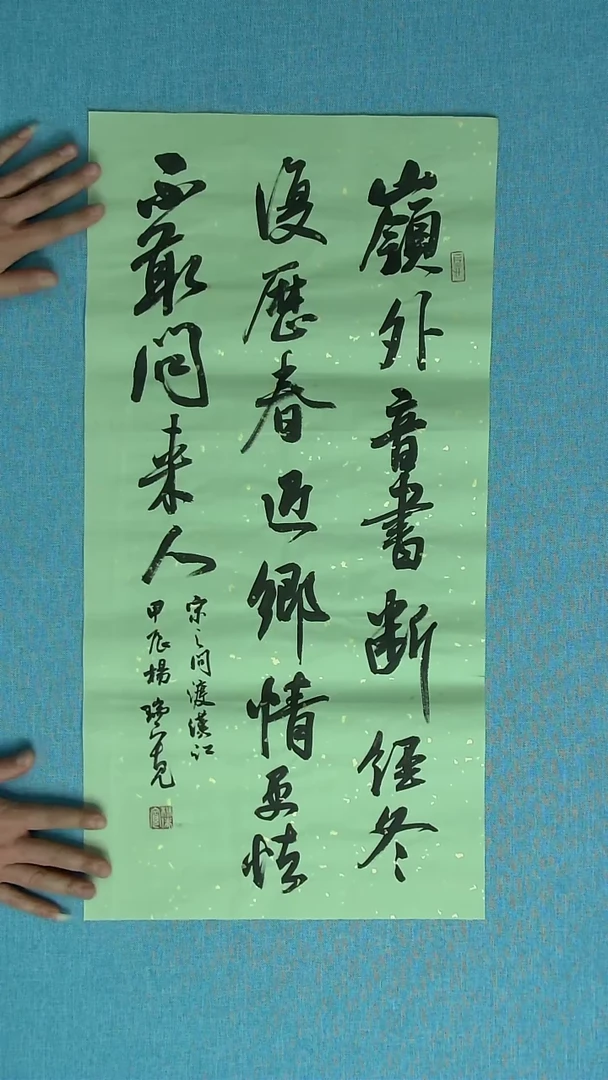 嶺外音書斷經冬
復歷春近鄉情更怯
不敢問來人
宋之问渡漢江
甲辰楊瑞克